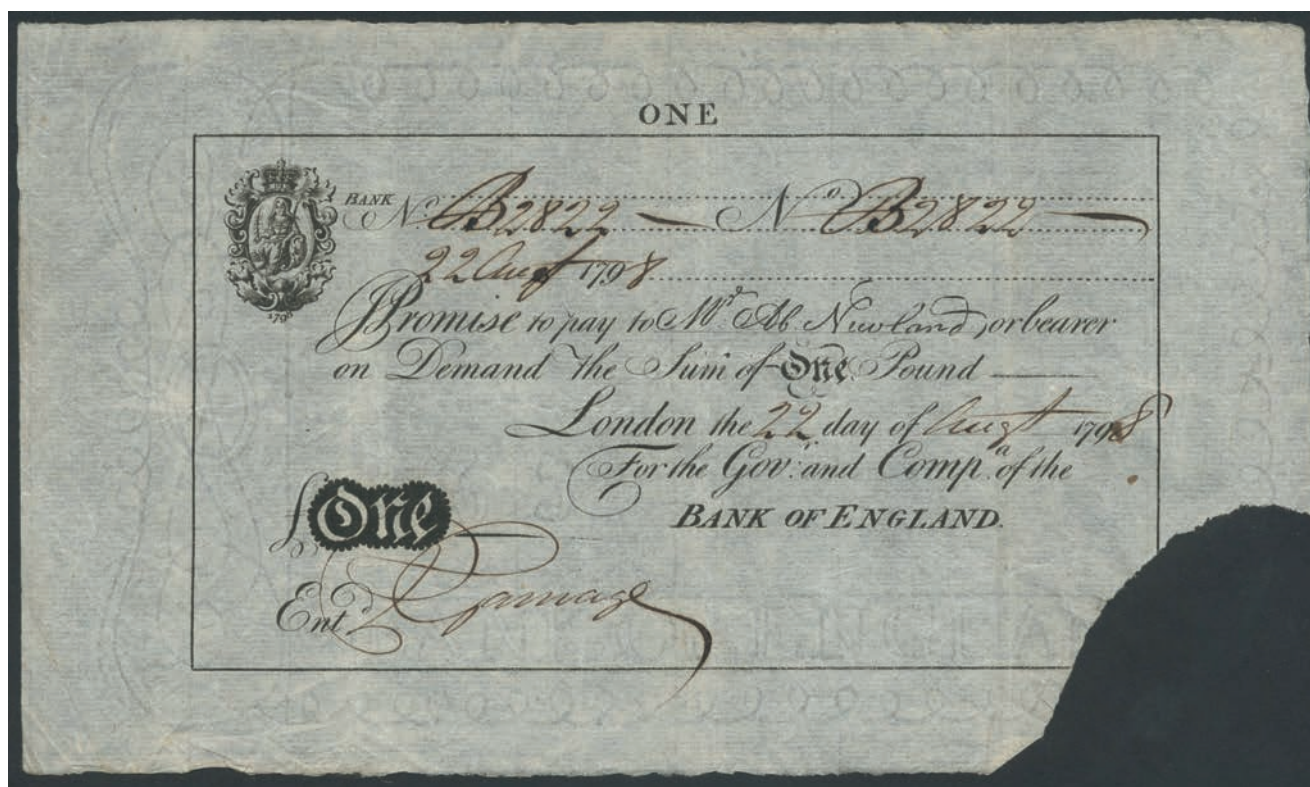 ONE
BANK No. B2822 — No. B2822 —
22 Augt 1798
1798
I Promise to pay to Mr. Ab. Newland, or bearer
on Demand the Sum of One Pound
London the 22 day of Augt 1798
For the Gov.r and Comp.a of the
£ One BANK OF ENGLAND.
Ent.d